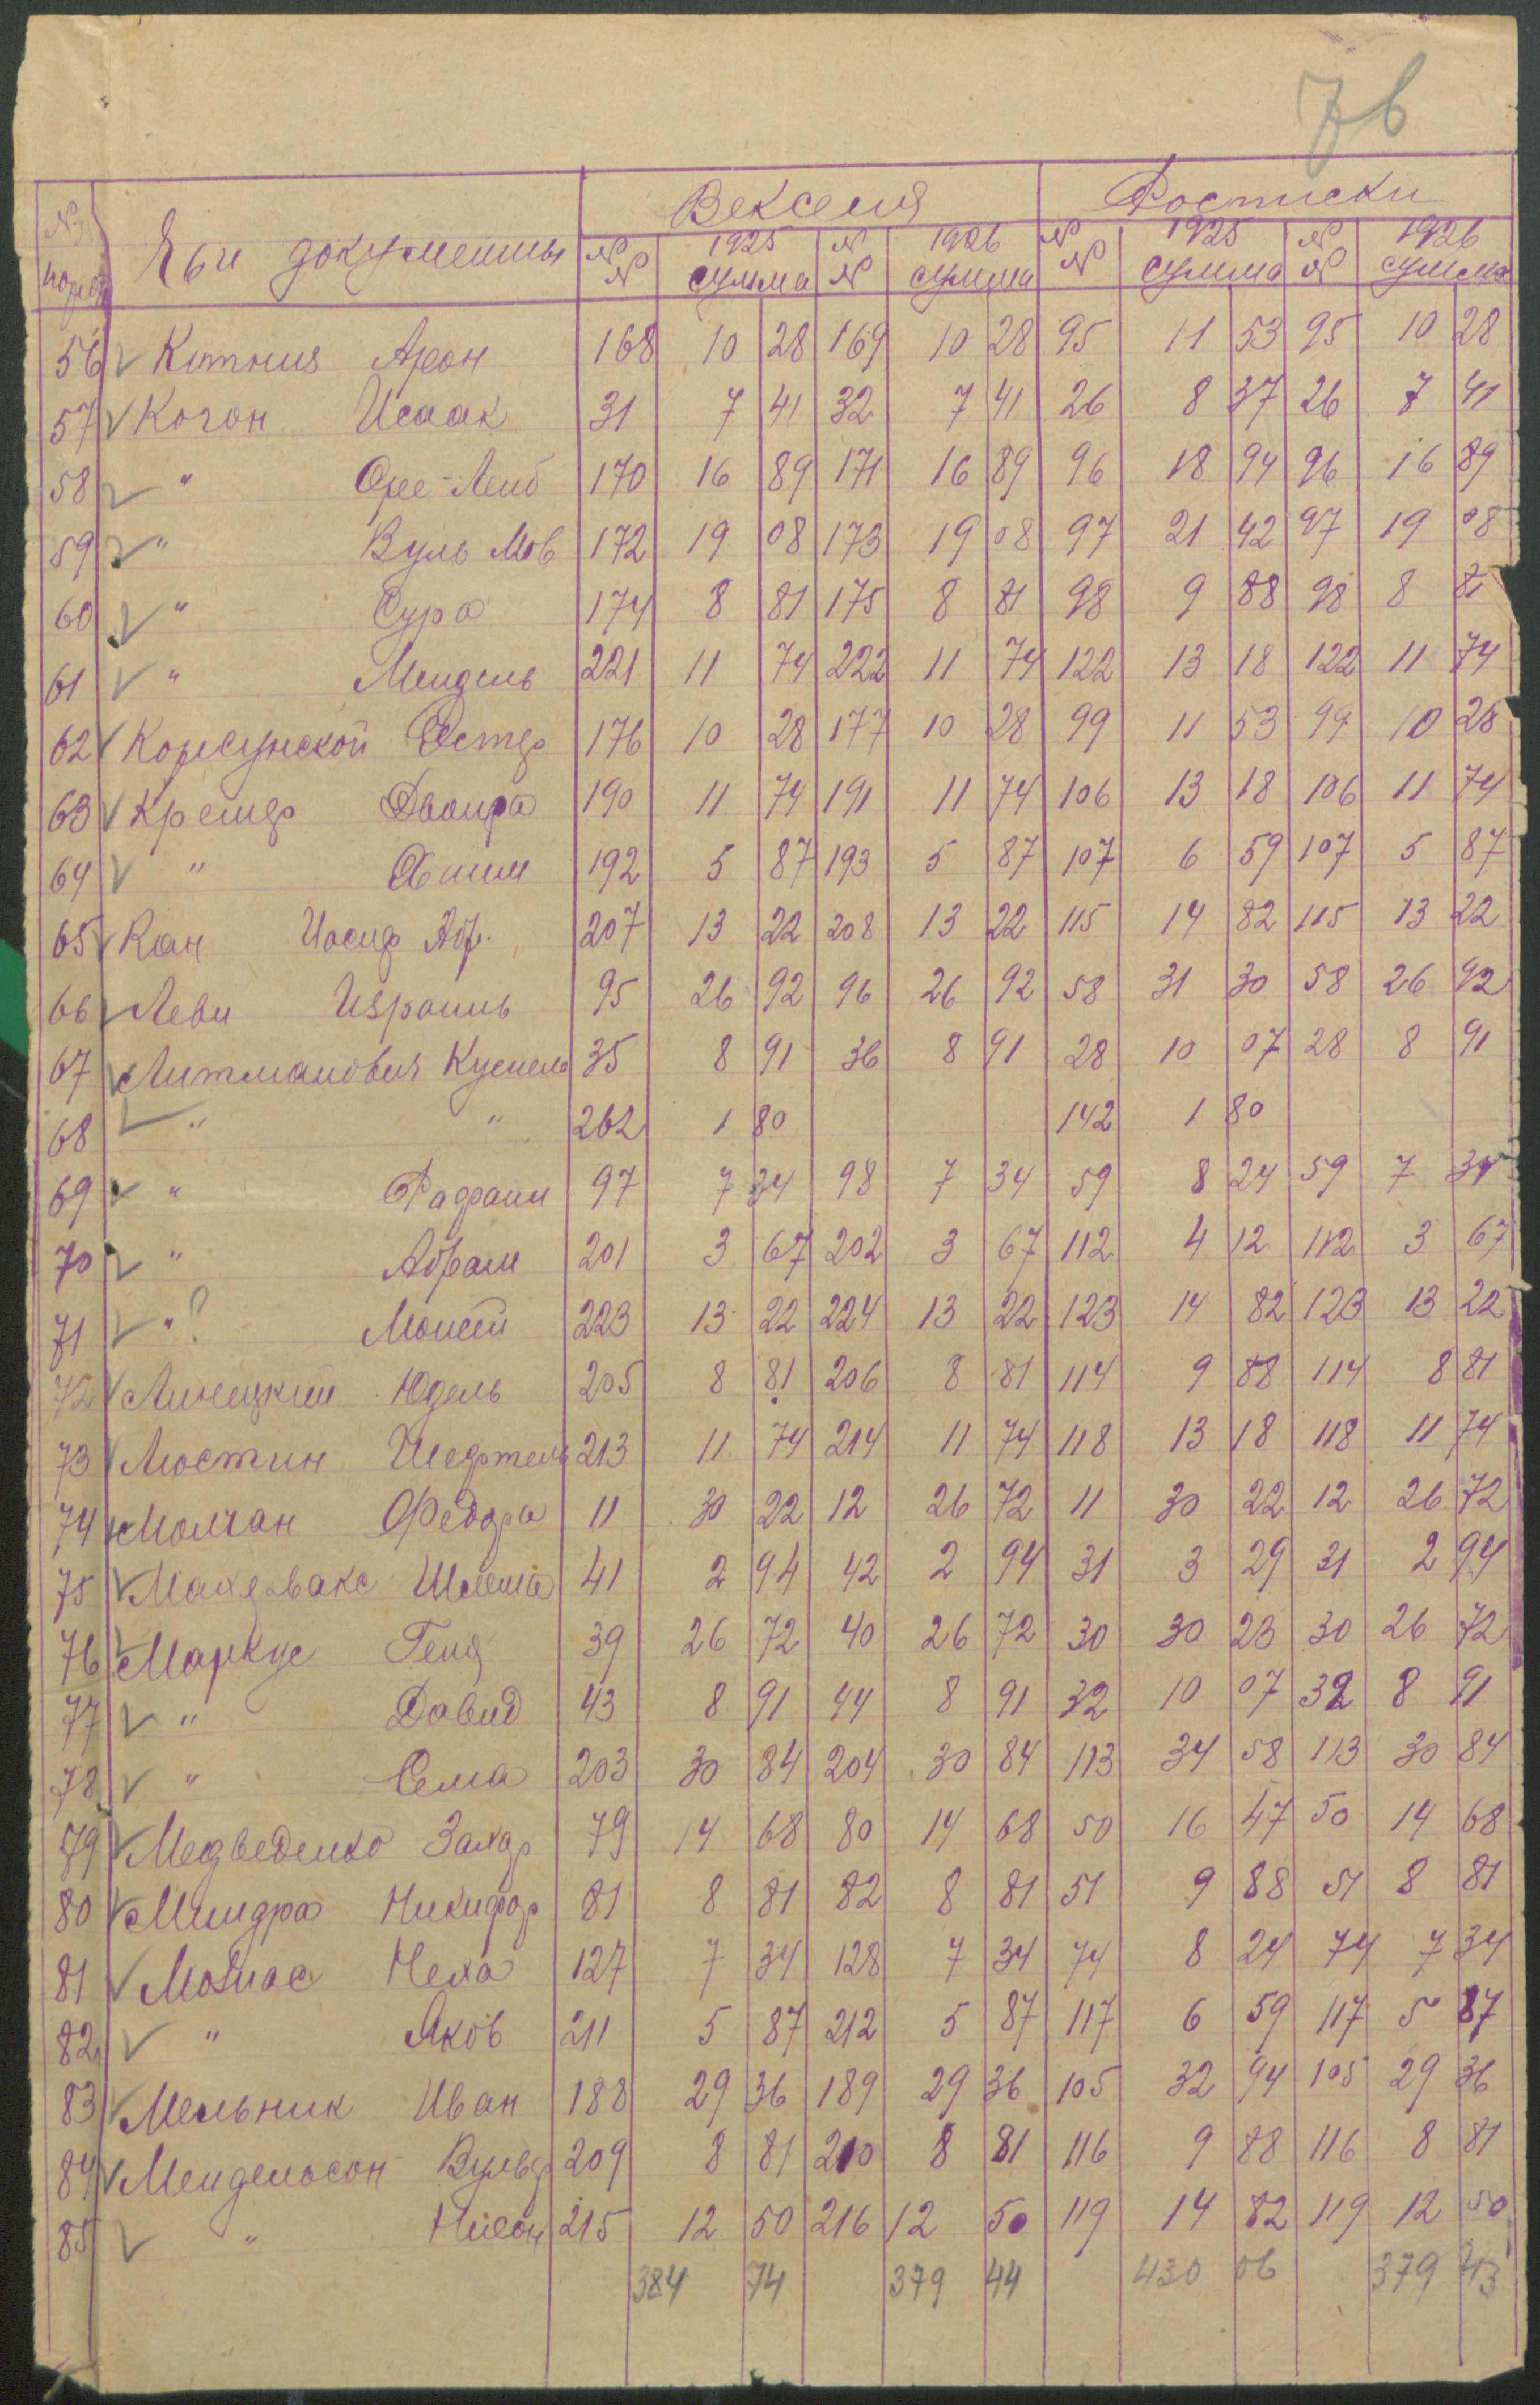 76
Векселя Росписки
№№ поряд Чьи документы №№ 1925 сумма №№ 1926 сумма №№ 1925 сумма №№ 1926 сумма
56 Китния Арон 168 10 28 169 10 28 95 11 53 95 10 28
57 Коган Исаак 31 7 41 32 7 41 26 8 37 26 7 41
58 " Оре-Лейб 170 16 89 171 16 89 96 18 94 96 16 89
59 " Вуль Мов 172 19 08 173 19 08 97 21 42 97 19 08
60 " Сура 174 8 81 175 8 81 98 9 88 98 8 81
61 " Мендель 221 11 74 222 11 74 122 13 18 122 11 74
62 Корсунской Эстер 176 10 28 177 10 28 99 11 53 99 10 28
63 Кремер Двойра 190 11 74 191 11 74 106 13 18 106 11 74
64 " Хаим 192 5 87 193 5 87 107 6 59 107 5 87
65 Кан Иосиф Абр. 207 13 22 208 13 22 115 14 82 115 13 22
66 Леви Израиль 95 26 92 96 26 92 58 31 30 58 26 92
67 Литманович Кусиель 35 8 91 36 8 91 28 10 07 28 8 91
68 " " 262 1 80 142 1 80
69 " Рафаил 97 7 34 98 7 34 59 8 24 59 7 34
70 " Абрам 201 3 67 202 3 67 112 4 12 112 3 67
71 " ? Моисей 223 13 22 224 13 22 123 14 82 123 13 22
72 Линецкий Юдель 205 8 81 206 8 81 114 9 88 114 8 81
73 Люстин Шефтель 213 11 74 214 11 74 118 13 18 118 11 74
74 Молчан Федора 11 30 22 12 26 72 11 30 22 12 26 72
75 Махдвакс Шлема 41 2 94 42 2 94 31 3 29 31 2 94
76 Маркус Геня 39 26 72 40 26 72 30 30 23 30 26 72
77 " Давид 43 8 91 44 8 91 32 10 07 32 8 91
78 " Сема 203 30 84 204 30 84 113 34 58 113 30 84
79 Медведенко Захар 79 14 68 80 14 68 50 16 47 50 14 68
80 Миндра Никифор 81 8 81 82 8 81 51 9 88 51 8 81
81 Неха 127 7 34 128 7 34 74 8 24 74 7 34
82 " Яков 211 5 87 212 5 87 117 6 59 117 5 87
83 Мельник Иван 188 29 36 189 29 36 105 32 94 105 29 36
84 Мендельсон Вульф 209 8 81 210 8 81 116 9 88 116 8 81
85 " Нисон 215 12 50 216 12 50 119 14 82 119 12 50
384 74 379 44 430 06 379 43